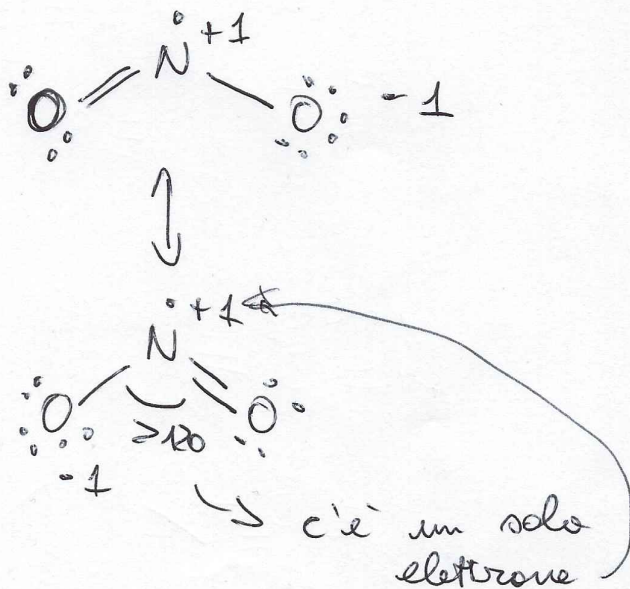 N +1
O O - 1
N +1
O O
>120
-1
c'è un solo
elettrone